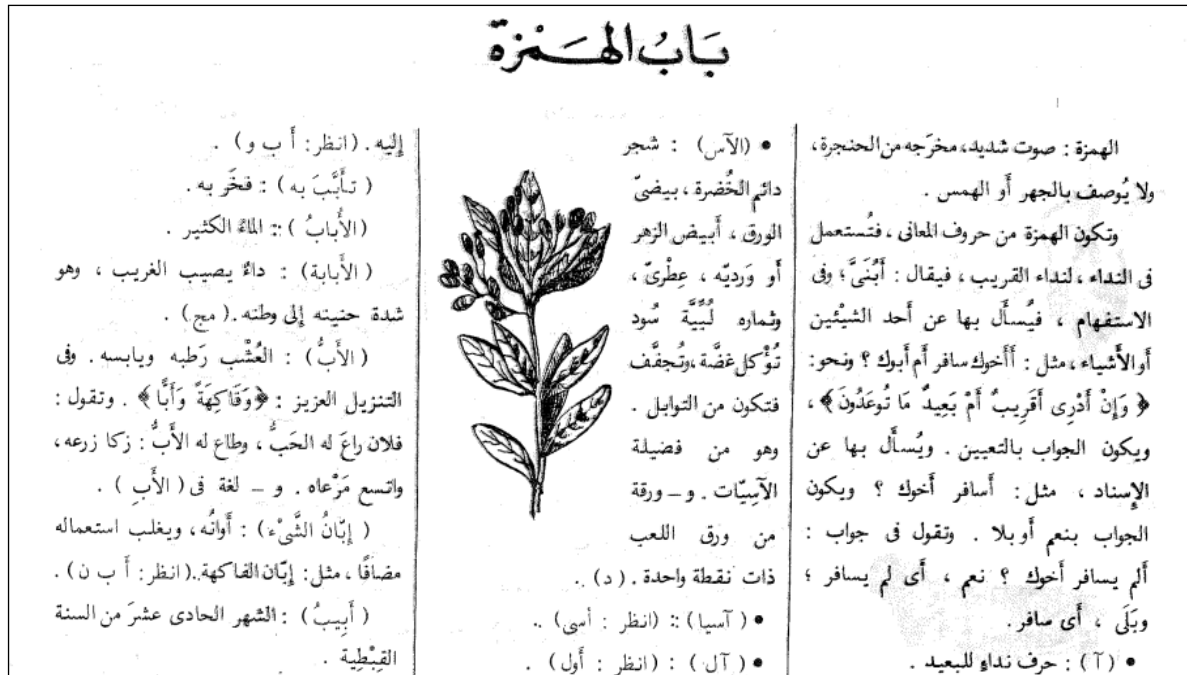 بَابُ الهَمْزَة
الهمزة : صوت شديد، مخرَجه من الحنجرة ،
ولا يُوصف بالجهر أَو الهمس .
وتكون الهمزة من حروف المعانى ، فتُستعمل
فى النداء ، لنداء القريب ، فيقال : أَبُنَىَّ ؛ وفى
الاستفهام ، فيُسأَل بها عن أَحد الشيْئين
أَو الأَشياء ، مثل : أَأَخوك سافر أَم أَبوك ؟ ونحو:
﴿ وَإِنْ أَدْرِى أَقَرِيبٌ أَمْ بَعِيدٌ مَا تُوعَدُونَ ﴾ ،
ويكون الجواب بالتعيين . ويُسأَل بها عن
الإِسناد ، مثل : أَسافر أَخوك ؟ ويكون
الجواب بنعم أَو بلا . وتقول فى جواب :
أَلم يسافر أَخوك ؟ نعم ، أَى لم يسافر ؛
وبَلَى ، أَى سافر .
• ( آ ) : حرف نداءٍ للبعيد .
• (الآس) : شجر
دائم الخُضرة ، بيضىّ
الورق ، أَبيض الزهر
أَو وَرديّه ، عِطْرىّ ،
وثماره لُبِّيَّة سُود
تُؤْكل غضَّة ،وتُجفَّف
فتكون من التوابل .
وهو من فضيلة
الآسِيّات . و – ورقة
من ورق اللعب
ذات نقطة واحدة . ( د ) .
• ( آسيا ) : (انظر : أسى) .
• ( آل ) : (انظر : أول) .
إِليه . (انظر: أ ب و) .
( تأَبَّبَ به ) : فخَر به .
(الأُبابُ ) : الماءُ الكثير .
(الأَبابة) : داءٌ يصيب الغريب ، وهو
شدة حنينه إِلى وطنه . (مج) .
(الأَبُّ) : العُشْب رَطبه ويابسه . وفى
التنزيل العزيز : ﴿وَفَاكِهَةً وَأَبًّا﴾ . وتقول :
فلان راعَ له الحَبُّ ، وطاع له الأَبُّ : زكا زرعه،
واتسع مَرْعاه . و – لغة فى ( الأَبِ ) .
( إِبّانُ الشَّىْءِ ) : أَوانُه، ويغلب استعماله
مضافًا ، مثل: إِبّان الفاكهة .(انظر: أ ب ن) .
( أَبِيبُ ) : الشهر الحادى عشرَ من السنة
القِبْطِية .